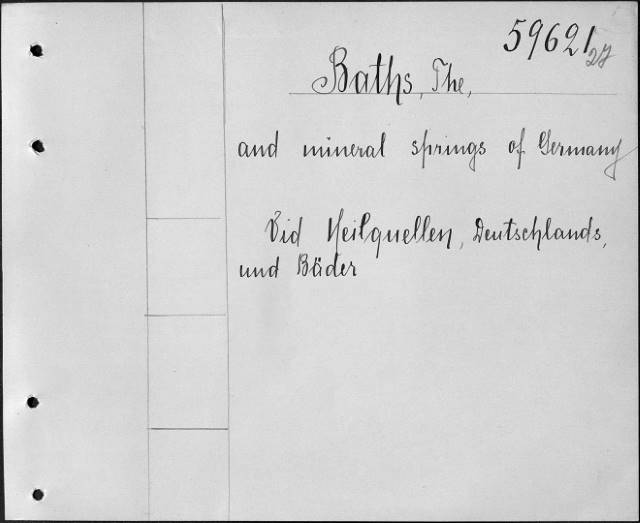 59621
27
Baths, The,
and mineral springs of Germany
Vid Heilquellen, Deutschlands,
und Bäder